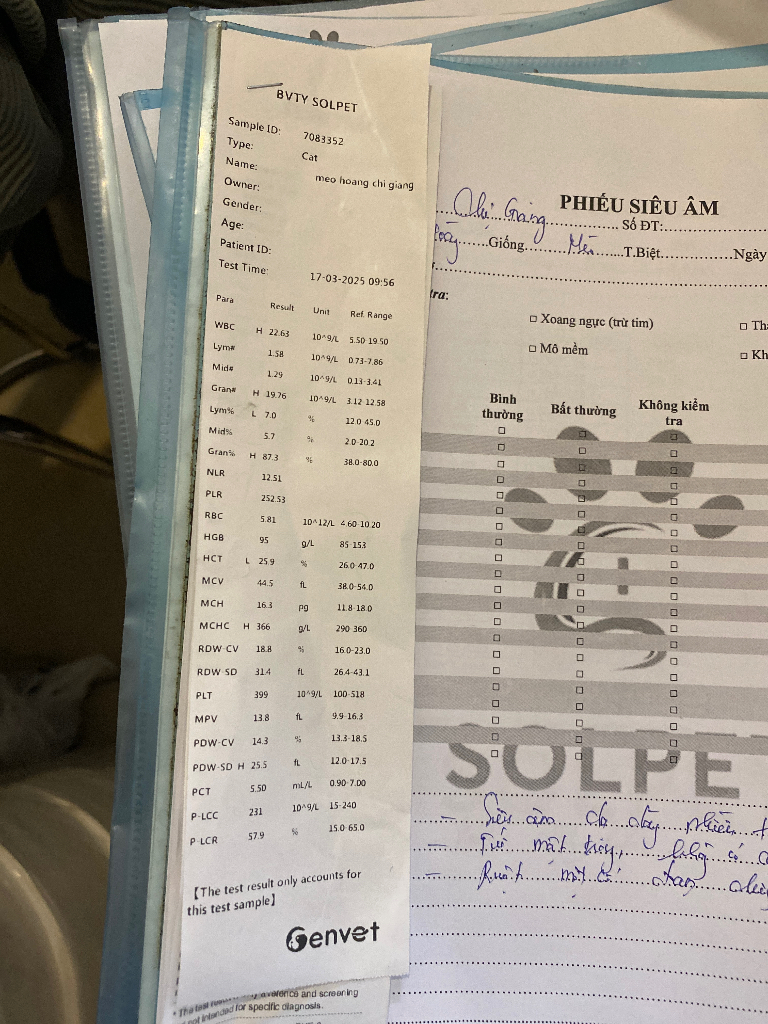 BVTY SOLPET
Sample ID: 7083352
Type: Cat
Name: meo hoang chi giang
Owner:
Gender:
Age:
Patient ID:
Test Time: 17-03-2025 09:56
Para Result Unit Ref. Range
WBC H 22.63 10^9/L 5.50-19.50
Lym# 1.58 10^9/L 0.73-7.86
Mid# 1.29 10^9/L 0.13-3.41
Gran# H 19.76 10^9/L 3.12-12.58
Lym% L 7.0 % 12.0-45.0
Mid% 5.7 % 2.0-20.2
Gran% H 87.3 % 38.0-80.0
NLR 12.51
PLR 252.53
RBC 5.81 10^12/L 4.60-10.20
HGB 95 g/L 85-153
HCT L 25.9 % 26.0-47.0
MCV 44.5 fL 38.0-54.0
MCH 16.3 pg 11.8-18.0
MCHC H 366 g/L 290-360
RDW-CV 18.8 % 16.0-23.0
RDW-SD 31.4 fL 26.4-43.1
PLT 399 10^9/L 100-518
MPV 13.8 fL 9.9-16.3
PDW-CV 14.3 % 13.3-18.5
PDW-SD H 25.5 fL 12.0-17.5
PCT 5.50 mL/L 0.90-7.00
P-LCC 231 10^9/L 15-240
P-LCR 57.9 % 15.0-65.0
【The test result only accounts for
this test sample】
Genvet
erence and screening
not intended for specific diagnosis.
PHIẾU SIÊU ÂM
Chị Giang Số ĐT:
Giống Mèo T.Biệt Ngày
tra:
□ Xoang ngực (trừ tim)
□ Mô mềm □ Kh
Bình thường Bất thường Không kiểm tra
SOLPE
- Siêu âm dạ dày nhiều
- Túi mật
- Ruột một